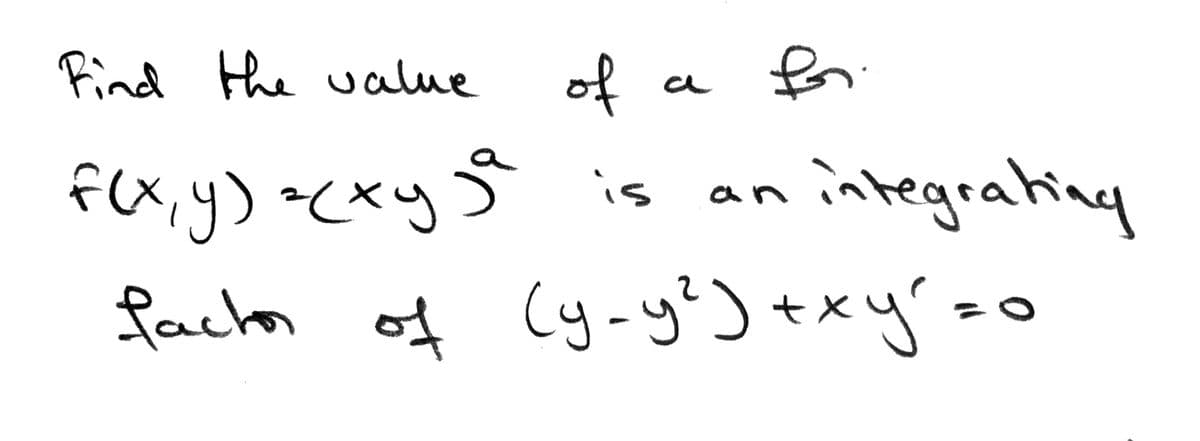 Find the value of a for
f(x,y) =(xy)^a is an integrating
factor of (y-y²) +xy' =0